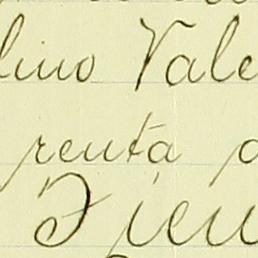 lino Vale
renta a
Fieu